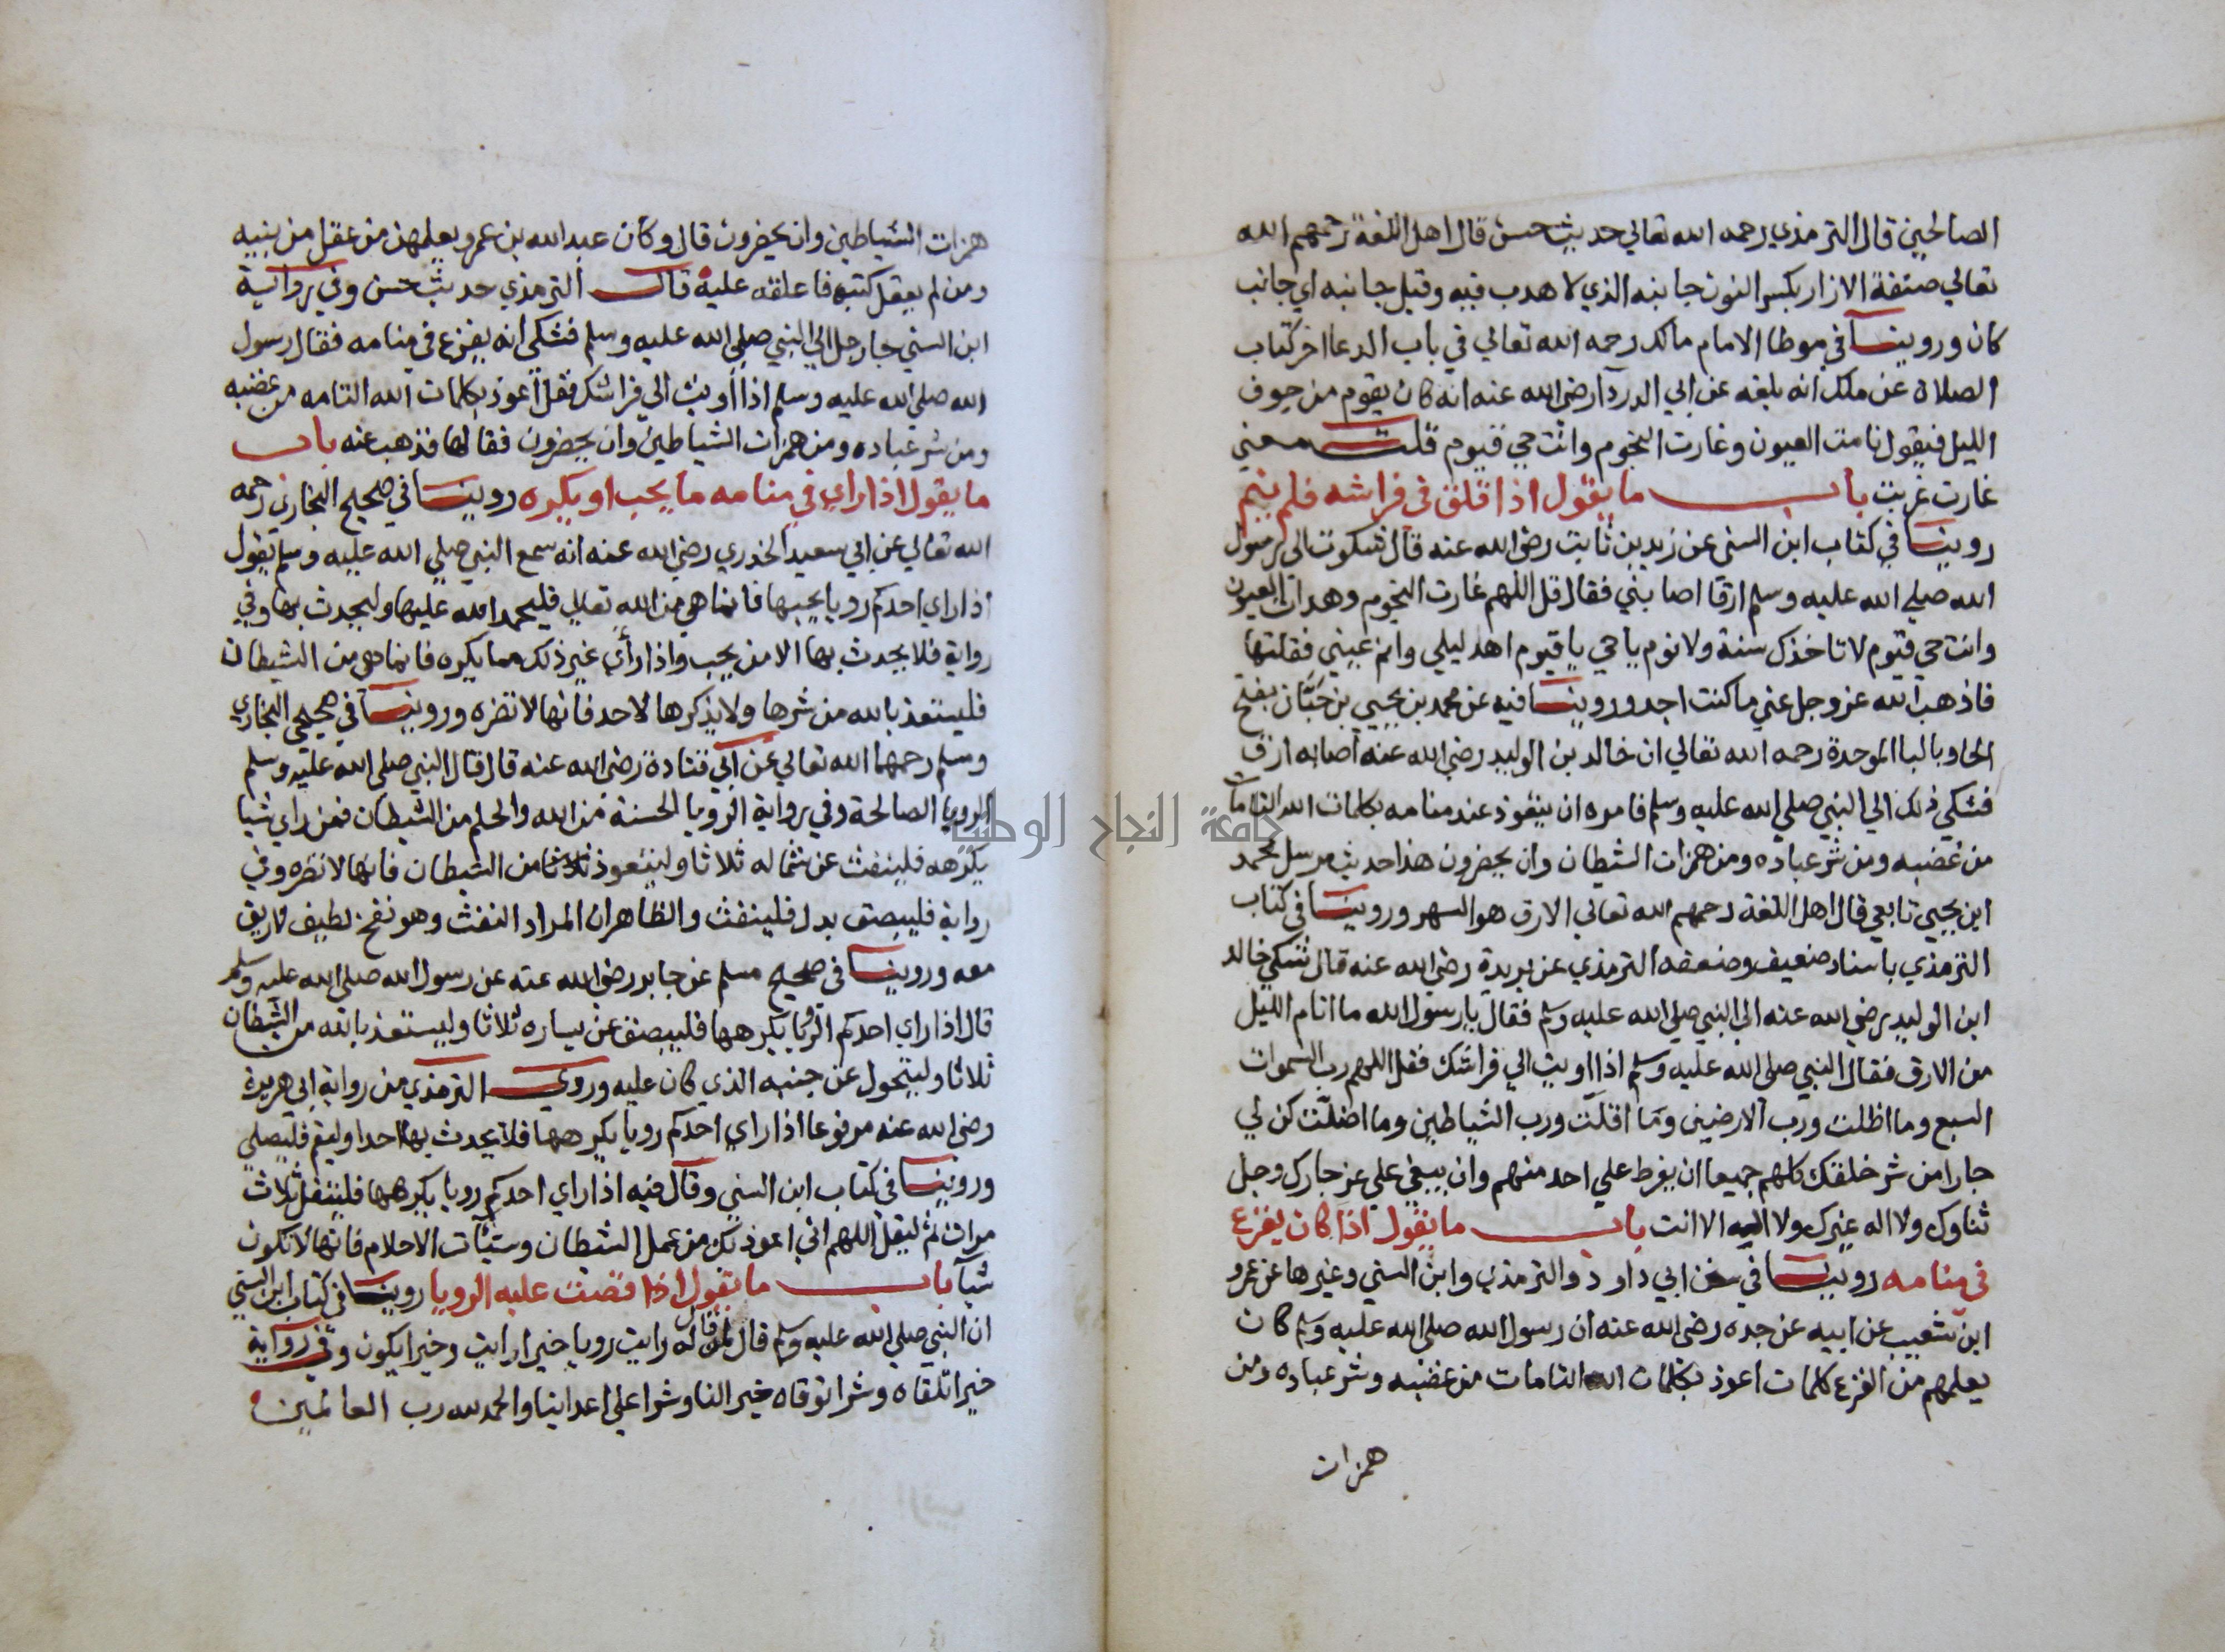 الصالحين قال الترمذي رحمه الله تعالي حديث حسن قال اهل اللغة رحمهم الله
تعالي صنفة الازار بكسر النون جانبه الذي لا هدب فيه وقيل جانبه اي جانب
كان وروينا في موطا الامام مالك رحمه الله تعالي في باب الدعا اخر كتاب
الصلاة عن ملك انه بلغه عن ابي الدردآ رضي الله عنه انه كان يقوم من جوف
الليل فيقول نامت العيون وغارت النجوم وانت حي قيوم قلت معني
غارت غربت باب ما يقول اذا قلق في فراشه فلم ينم
روينا في كتاب ابن السني عن زيد بن ثابت رضي الله عنه قال شكوت الى رسول
الله صلي الله عليه وسلم ارقا اصابني فقال قل اللهم غارت النجوم وهدات العيون
وانت حي قيوم لا تاخذك سنة ولا نوم يا حي يا قيوم اهد ليلي وانم عيني فقلتها
فاذهب الله عز وجل عني ما كنت اجد وروينا فيه عن محمد بن يحيي بن حَبَّان بفتح
الحا وبالبا الموحدة رحمه الله تعالي ان خالد بن الوليد رضي الله عنه اصابه ارق
فشكي ذلك الي النبي صلي الله عليه وسلم فامره ان يتعوذ عند منامه بكلمات الله التامات
من غضبه ومن شر عباده ومن همزات الشيطان وان يحضرون هذا حديث مرسل محمد
ابن يحيي تابعي قال اهل اللغة رحمهم الله تعالي الارق هو السهر وروينا في كتاب
الترمذي باسناد ضعيف وضعفه الترمذي عن بريدة رضي الله عنه قال شكي خالد
ابن الوليد رضي الله عنه الى النبي صلي الله عليه وسلم فقال يا رسول الله ما انام الليل
من الارق فقال النبي صلي الله عليه وسلم اذا اويت الي فراشك فقل اللهم رب السموات
السبع وما اظلت ورب الارضين وما اقلت ورب الشياطين وما اضلت كن لي
جارا من شر خلقك كلهم جميعا ان يفرط علي احد منهم وان يبغي علي عز جارك وجل
ثناوك ولا اله غيرك ولا اله الا انت باب ما يقول اذا كان يفزع
في منامه روينا في سنن ابي داود والترمذي وابن السني وغيرها عن عمرو
ابن شعيب عن ابيه عن جده رضي الله عنه ان رسول الله صلى الله عليه وسلم كان
يعلمهم من الفزع كلمات اعوذ بكلمات الله التامات من غضبه وشر عباده ومن
همزات
همزات الشياطين وان يحضرون قال وكان عبد الله بن عمرو يعلمهن من عقل من بنيه
ومن لم يعقل كتبه فاعلقه عليه قال الترمذي حديث حسن وفي رواية
ابن السني جا رجل الي النبي صلي الله عليه وسلم فشكي انه يفزع في منامه فقال رسول
الله صلي الله عليه وسلم اذا اويت الي فراشك فقل اعوذ بكلمات الله التامه من غضبه
ومن شر عباده ومن همزات الشياطين وان يحضرون فقالها فذهب عنه باب
ما يقول اذا راي في منامه ما يحب او يكره روينا في صحيح البخاري رحمه
الله تعالي عن ابي سعيد الخدري رضي الله عنه انه سمع النبي صلي الله عليه وسلم يقول
اذا راي احدكم رويا يحبها فانما هي من الله تعالي فليحمد الله عليها وليحدث بها وفي
رواية فلا يحدث بها الا من يحب واذا رأي غير ذلك مما يكره فانما هي من الشيطان
فليستعذ بالله من شرها ولا يذكرها لاحد فانها لا تضره وروينا في صحيحي البخاري
ومسلم رحمهما الله تعالي عن ابي قتادة رضي الله عنه قال قال النبي صلي الله عليه وسلم
الرويا الصالحة وفي رواية الرويا الحسنة من الله والحلم من الشيطان فمن راي شيا
يكرهه فلينفث عن شماله ثلاثا وليتعوذ ثلاثا من الشيطان فانها لا تضره وفي
رواية فليبصق بدل فلينفث والظاهر ان المراد النفث وهو نفخ لطيف لا ريق
معه وروينا في صحيح مسلم عن جابر رضي الله عنه عن رسول الله صلي الله عليه وسلم
قال اذا راي احدكم الرويا يكرهها فليبصق عن يساره ثلاثا وليستعذ بالله من الشيطان
ثلاثا وليتحول عن جنبه الذي كان عليه وروي الترمذي من رواية ابي هريرة
رضي الله عنه مرفوعا اذا راي احدكم رويا يكرهها فلا يحدث بها احدا وليقم فليصلي
وروينا في كتاب ابن السني وقال فيه اذا راي احدكم رويا يكرهها فليتفل ثلاث
مرات ثم ليقل اللهم اني اعوذ بك من عمل الشيطان وسيئات الاحلام فانها لا تكون
شيآ باب ما يقول اذا قصت عليه الرويا روينا في كتاب ابن السني
ان النبي صلي الله عليه وسلم قال لمن قال له رايت رويا خيرا رايت وخيرا يكون وفي رواية
خيرا تلقاه وشرا توقاه خيرا لنا وشرا على اعداينا والحمد لله رب العالمين
جامعة النجاح الوطنية